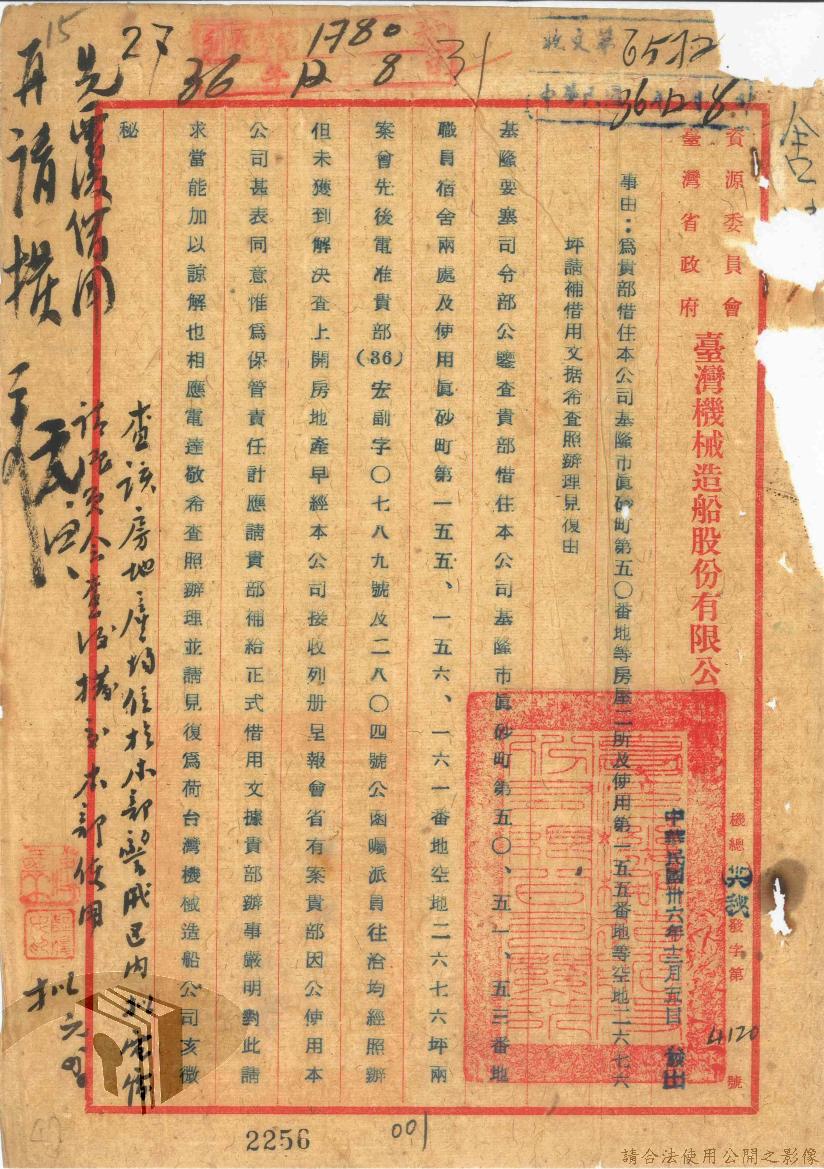 15
27
1780
36 12 8
31
收文第
6512
中華民國
36年12月8日
資源委員會
臺灣省政府
臺灣機械造船股份有限公司
機總
發字第
4120
號
中華民國卅六年十二月五日 發出
事由：爲貴部借住本公司基隆市眞砂町第五〇番地等房屋二所及使用第一五五番地等空地二六七六
坪請補借用文据希查照辦理見復由
基隆要塞司令部公鑒查貴部借住本公司基隆市眞砂町第五〇、五一、五三番地
職員宿舍兩處及使用眞砂町第一五五、一五六、一六一番地空地二六七六坪兩
案曾先後電准貴部(36)宏副字〇七八九號及二八〇四號公函囑派員往洽均經照辦
但未獲到解決查上開房地產早經本公司接收列册呈報會省有案貴部因公使用本
公司甚表同意惟爲保管責任計應請貴部補給正式借用文據貴部辦事嚴明對此請
求當能加以諒解也相應電達敬希查照辦理並請見復爲荷台灣機械造船公司亥微
秘
查該房地產均位於本部警戒區內
本部使用
再請撥
2256
001
請合法使用公開之影像